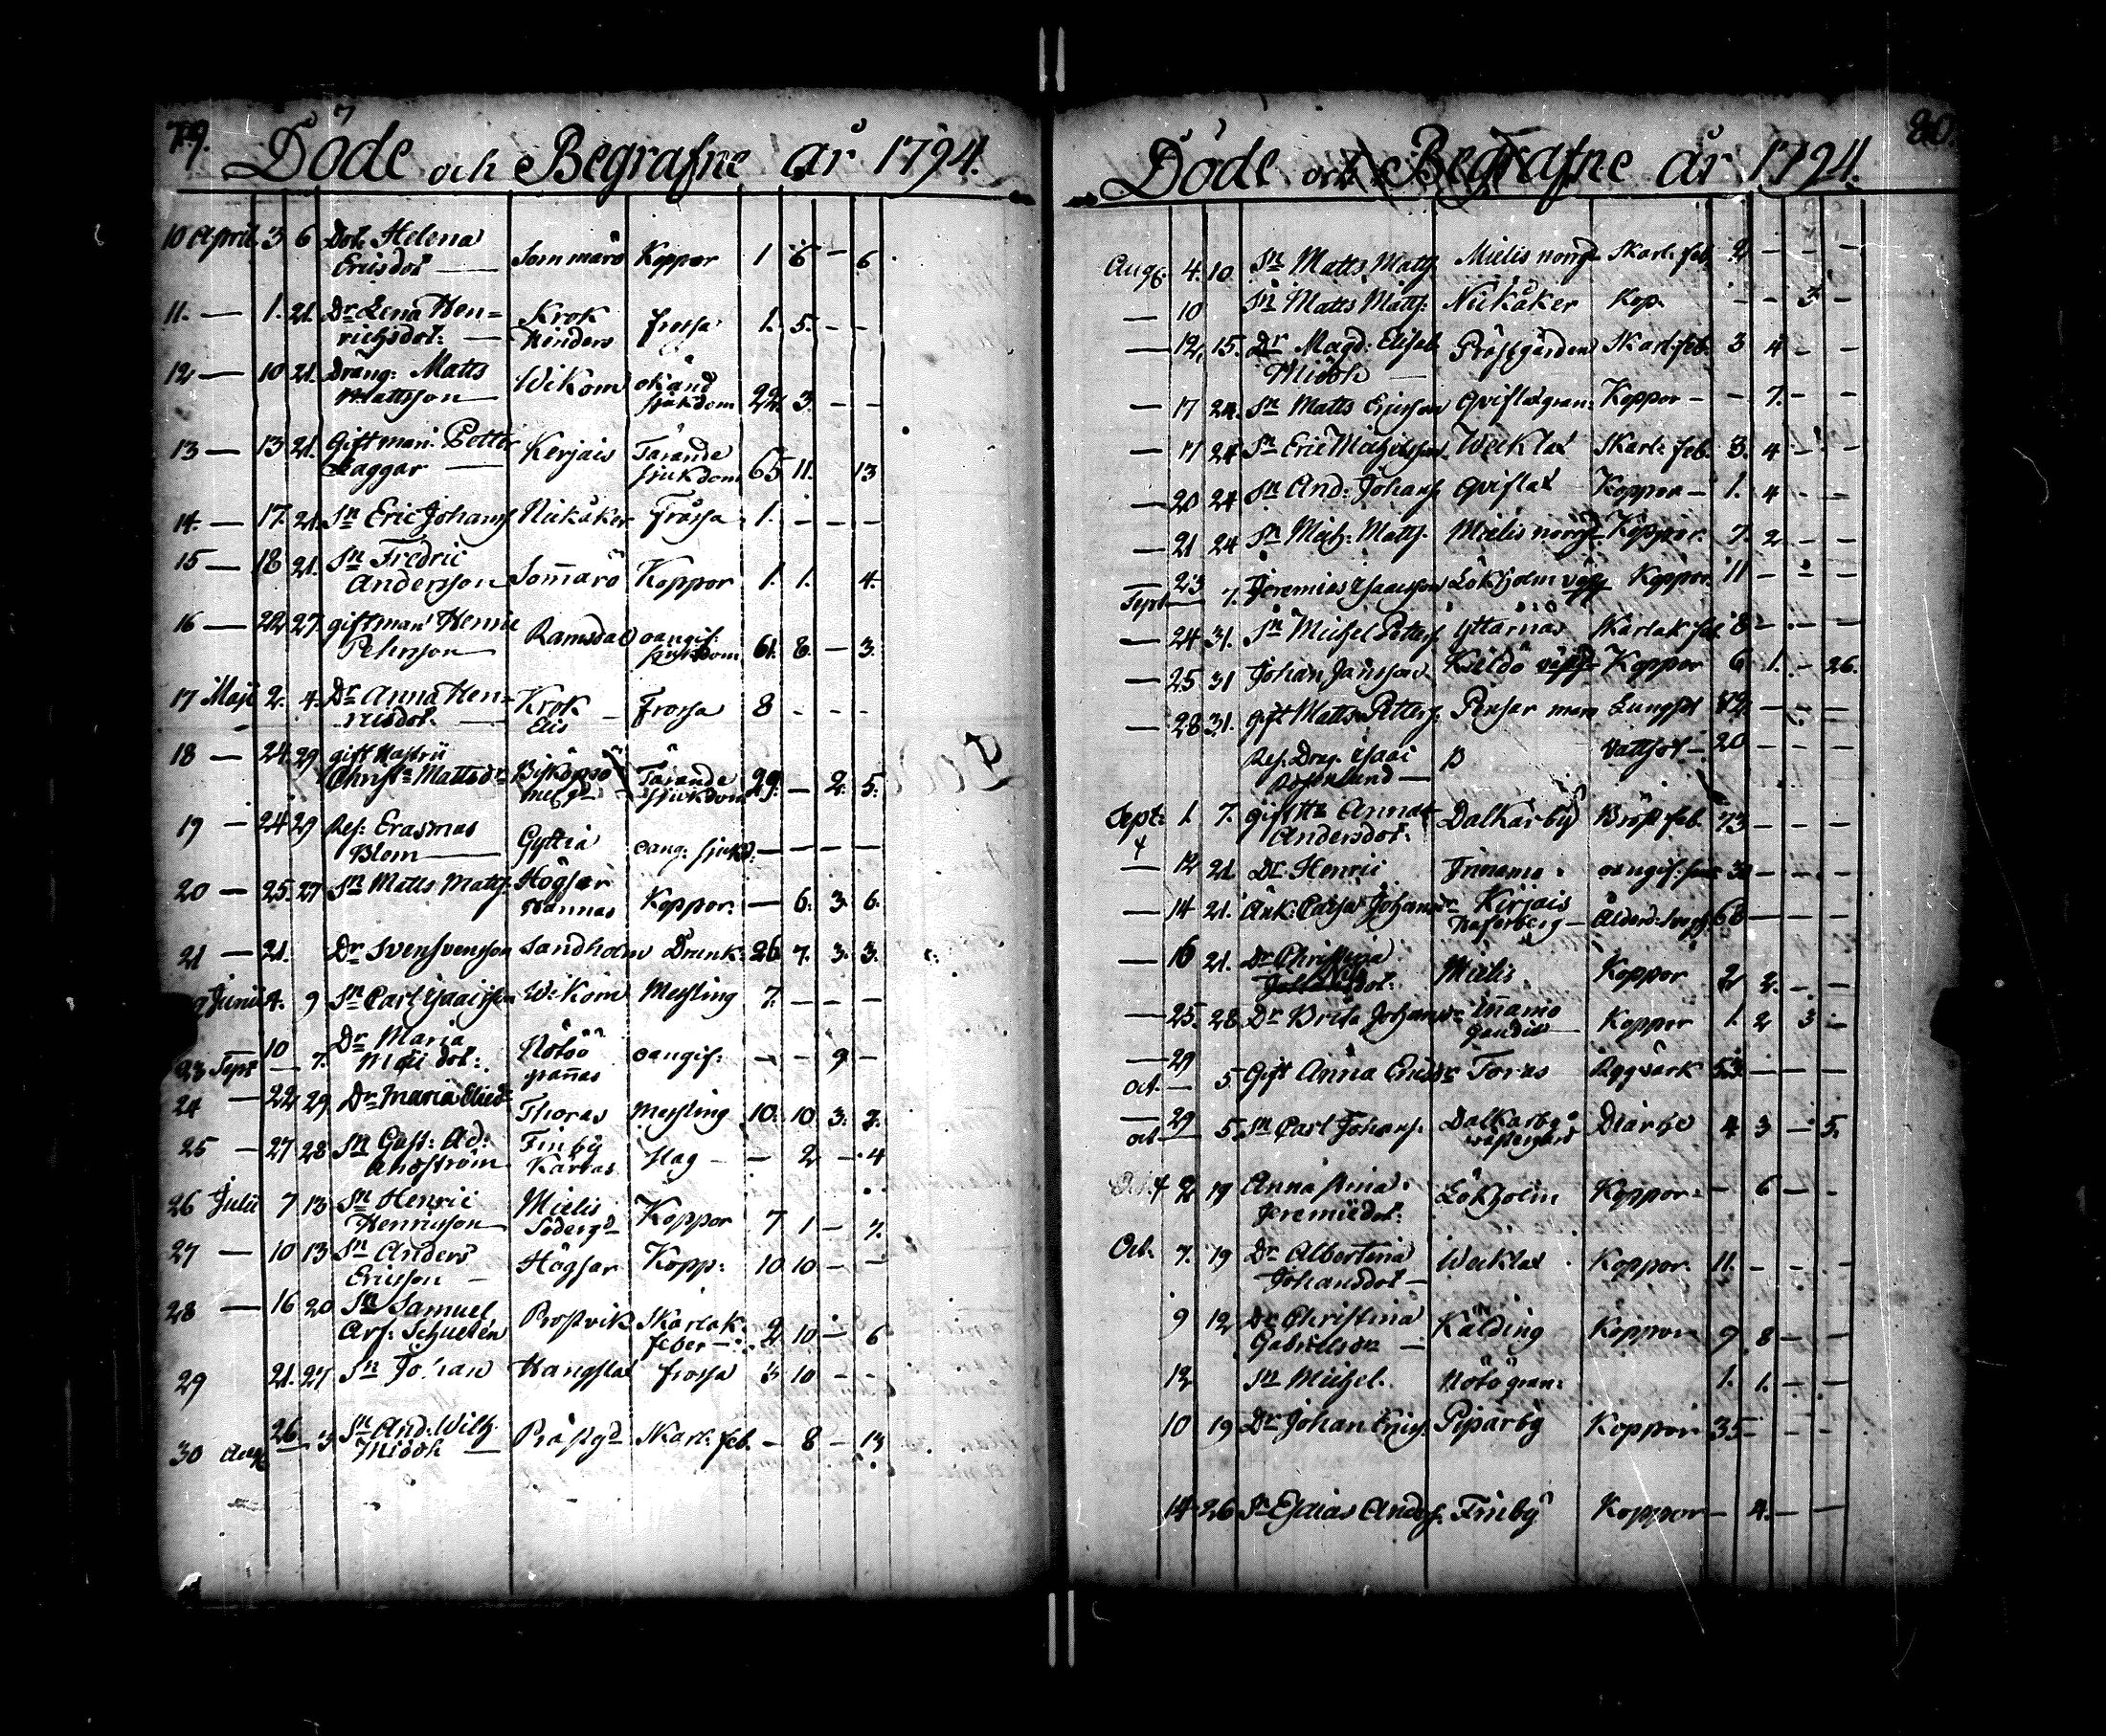 79.
Döde och Begrafne år 1794.
10 April 3 6 Dot. Helena
Ericsdot Sommarö Koppor 1 6 — 6
11. — 1. 21. Dr. Lena Hen= Krok
richsdot: Henders frossa 1. 5. — —
12 — 10 21. Dräng: Matts
Mattsson Wikom okänd
sjukdom 22. 3. — —
13 — 13. 21. Gift man: Petter
Laggar Kerjais Tärande
sjukdom 65 11. 13
14. — 17. 21. Sn Eric Johanss Nickåker Frossa 1. — — —
15 — 18 21. Sn Fredric
Andersson Sommarö Koppor 1. 1. 4.
16 — 22 27. gift man Henric
Petersson Ramsdal oangif:
sjukdom 61. 8. — 3.
17 Maji 2. 4. Dr. Anna Hen= Krok
ricsdot. Elis Frossa 8 — — —
18 — 24. 29 gift Hustru
Christ: Mattsdr Biskopsö
Tärande
sjukdom 29. — 2. 5.
19 — 24 29 Ref: Erasmus
Blom Gyttia oang: sjukd: — — — —
20 — 25. 27 Sn Matts Matts. Högsar
Nannas Koppor. — 6. 3. 6.
21 — 21. Dr Sven Svensson Sandholm Drunk: 26 7. 3. 3.
Junii 4. 9 Sn Carl Isaacsson W: Kom Messling 7. — — —
10 Dr. Maria
23 Sept — 7. Nötöö
grannas oangif: — — 9 —
24 — 22 29 Dr Maria Thoras Messling 10. 10 3.
25 — 27 28 Sn Gust: Ad: Finby
Kärras Slag — — 2 — 4
26 Julii 7 13 Sn Henric
Henricsson Mielis
Söderg:d Koppor 7 1 — 7.
27 — 10 13 Sn Anders
Ericsson — Högsar Kopp: 10 10 — —
28 — 16 20 Sn Samuel
Prostvik Skarlak:
feber — 2 10 — 6
29 21. 27 Sn Johan Hangslax frossa 3 10 — —
30 Aug 26 3 Sn And: Wilh.
Midöh Prästg:d Skarl: feb. — 8 — 13
80.
Döde och Begrafne år 1794.
Aug. 4. 10. Sn Matts Matts. Mielis norrg Skarl: feb. 2 — — —
— 10 Sn Matts Matts. Nickåker Kop. — — 3 —
— 12. 15. Dr Magd: Elisab.
Midöh — Prästgården Skarl: feb. 3 4 — —
— 17 24. Sn Matts Ericsson Qviflax gran: Koppor — — 7. — —
— 17 24 Sn Eric Michelsson Wecklax Skarl: feb. 3. 4 — —
— 20 24 Sn And: Johanss Qviflax Koppor — 1. 4 — —
— 21 24 Sn Mich: Matts. Mielis norrg: Koppor. 7. 2 — —
— 23
Sept — 7. Jeremias Isaacsson Lökholm Koppor. 11 — — —
— 24 31. Sn Michel Petters. Yttärnäs Skarlak feb. 8 — — —
— 25 31 Johan Jansson Kieldö Koppor 6 1. — 26.
— 28 31. gift Matts Petters. Pensar Lungsot — — —
Ref. Drag. Isaac
Rosenlund — Vattsot — 20 — — —
Sept: 1. 7. gift Anna
Andersdot. Dalkarby Bröst feb. 73 — — —
— 12 21. Dr. Henric Innamo oangif: — — —
— 14 21. Änk: Caisa Johansdr Kirjais
Ålderd: 66 — — —
— 16 21. Dr Christina
dot. Mielis Koppor 2 2. — —
— 25. 28 Dr Brita Johansdr Innamo Koppor 1. 2 3 —
— 29
Oct. — 5 Gift Anna Ericsdr Toras Ryggvärk 53. — — —
— 29
Oct — 5 Sn Carl Johans. Dalkarby
västergård Diarhe 4 3 — 5.
2 19 Anna Stina
Jeremiædot. Lökholm Koppor. — 6 — —
Oct. 7. 19 Dr Albertina
Johansdot — Wecklax Koppor. 11. — — —
9 12 Dr Christina
Gabrielsdr — Kälding Koppor 9 8 — —
12 Sn Michel. Nötö gran: 1. 1. — —
10 19 Dr Johan Erics. Piparby Koppor 35 — — —
14 26 Sn Esaias Anders. Finby Koppor — 4. — —